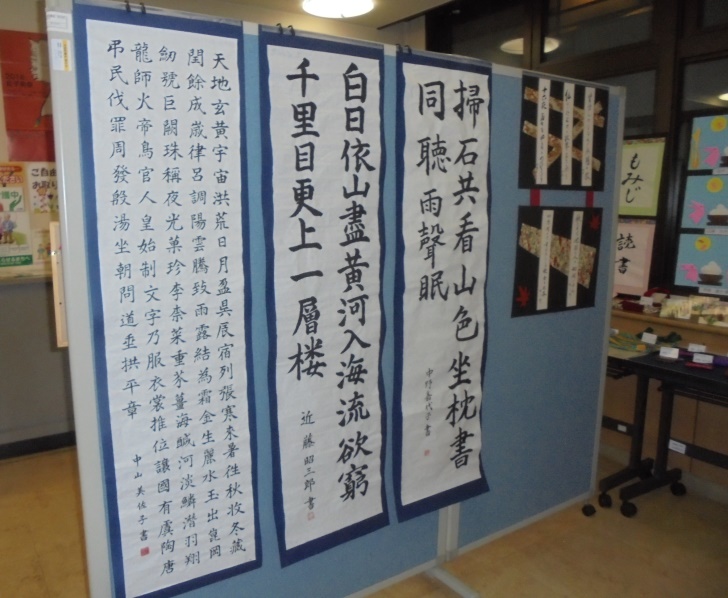 天地玄黄宇宙洪荒日月盈昃辰宿列張寒来暑往秋收冬藏
閏餘成歳律呂調陽雲騰致雨露結為霜金生麗水玉出崑岡
劒號巨闕珠稱夜光菓珍李柰菜重芥薑海醎河淡鱗潜羽翔
龍師火帝鳥官人皇始制文字乃服衣裳推位讓國有虞陶唐
弔民伐罪周發殷湯坐朝問道垂拱平章
中山美佐子書
白日依山盡黄河入海流欲窮
千里目更上一層楼
近藤昭三郎書
掃石共看山色坐枕書
同聴雨聲眠
もみじ
読書
ご自由
お取り